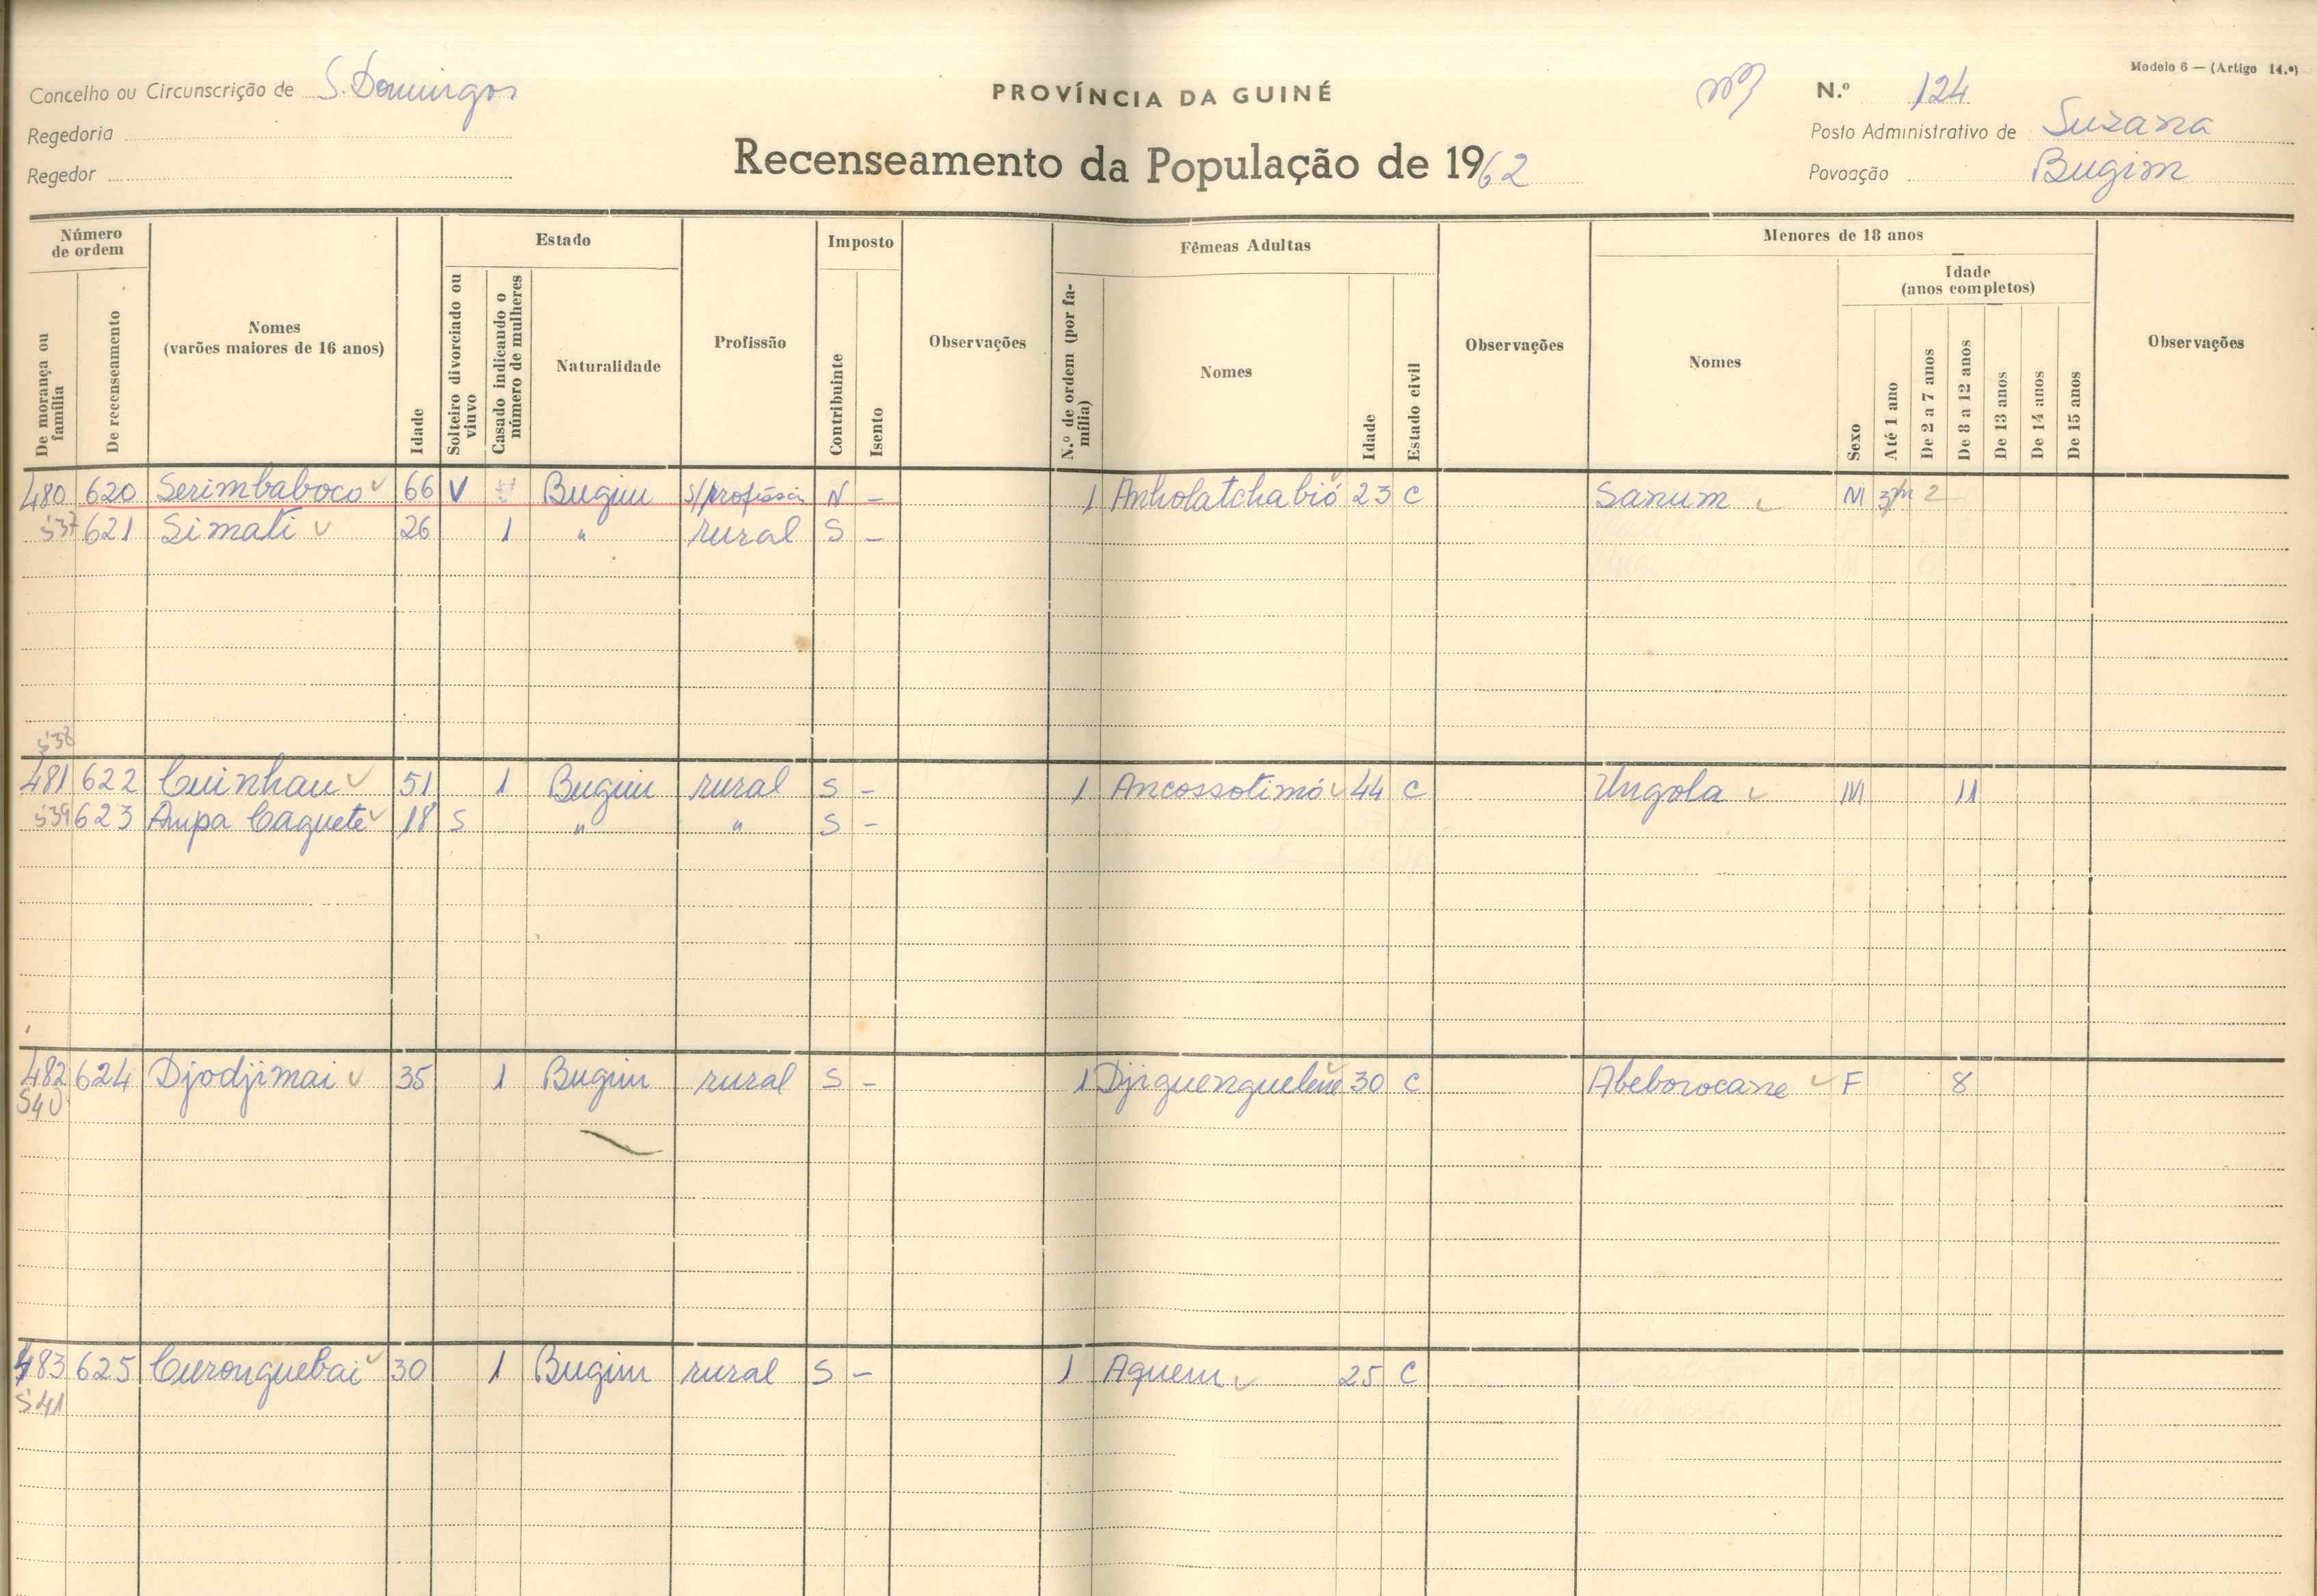 Modelo 6 — (Artigo 14.º)
Concelho ou Circunscrição de S. Domingos
PROVÍNCIA DA GUINÉ
N.º 124
Regedoria
Posto Administrativo de Suzana
Regedor
Recenseamento da População de 1962
Povoação Bugim
Número de ordem
De morança ou família
De recenseamento
Nomes
(varões maiores de 16 anos)
Idade
Estado
Solteiro divorciado ou viuvo
Casado indicando o número de mulheres
Naturalidade
Profissão
Imposto
Contribuinte
Isento
Observações
Fêmeas Adultas
N.º de ordem (por família)
Nomes
Idade
Estado civil
Observações
Menores de 18 anos
Nomes
Sexo
Idade
(anos completos)
Até 1 ano
De 2 a 7 anos
De 8 a 12 anos
De 13 anos
De 14 anos
De 15 anos
Observações
480 620 Serimbaboco 66 V Bugim s/profissão N - 1 Anholatchabió 23 C Sanum M 3/m 2
537 621 Simati 26 1 " rural S -
538
481 622 Cuinhau 51 1 Bugim rural S - 1 Ancossotimó 44 C Ungola M 11
539 623 Ampa Caquete 18 S " " S -
482 624 Djodjimai 35 1 Bugim rural S - 1 Djiguenguelene 30 C Abeborocane F 8
540
483 625 Curonguebai 30 1 Bugim rural S - 1 Aquem 25 C
541